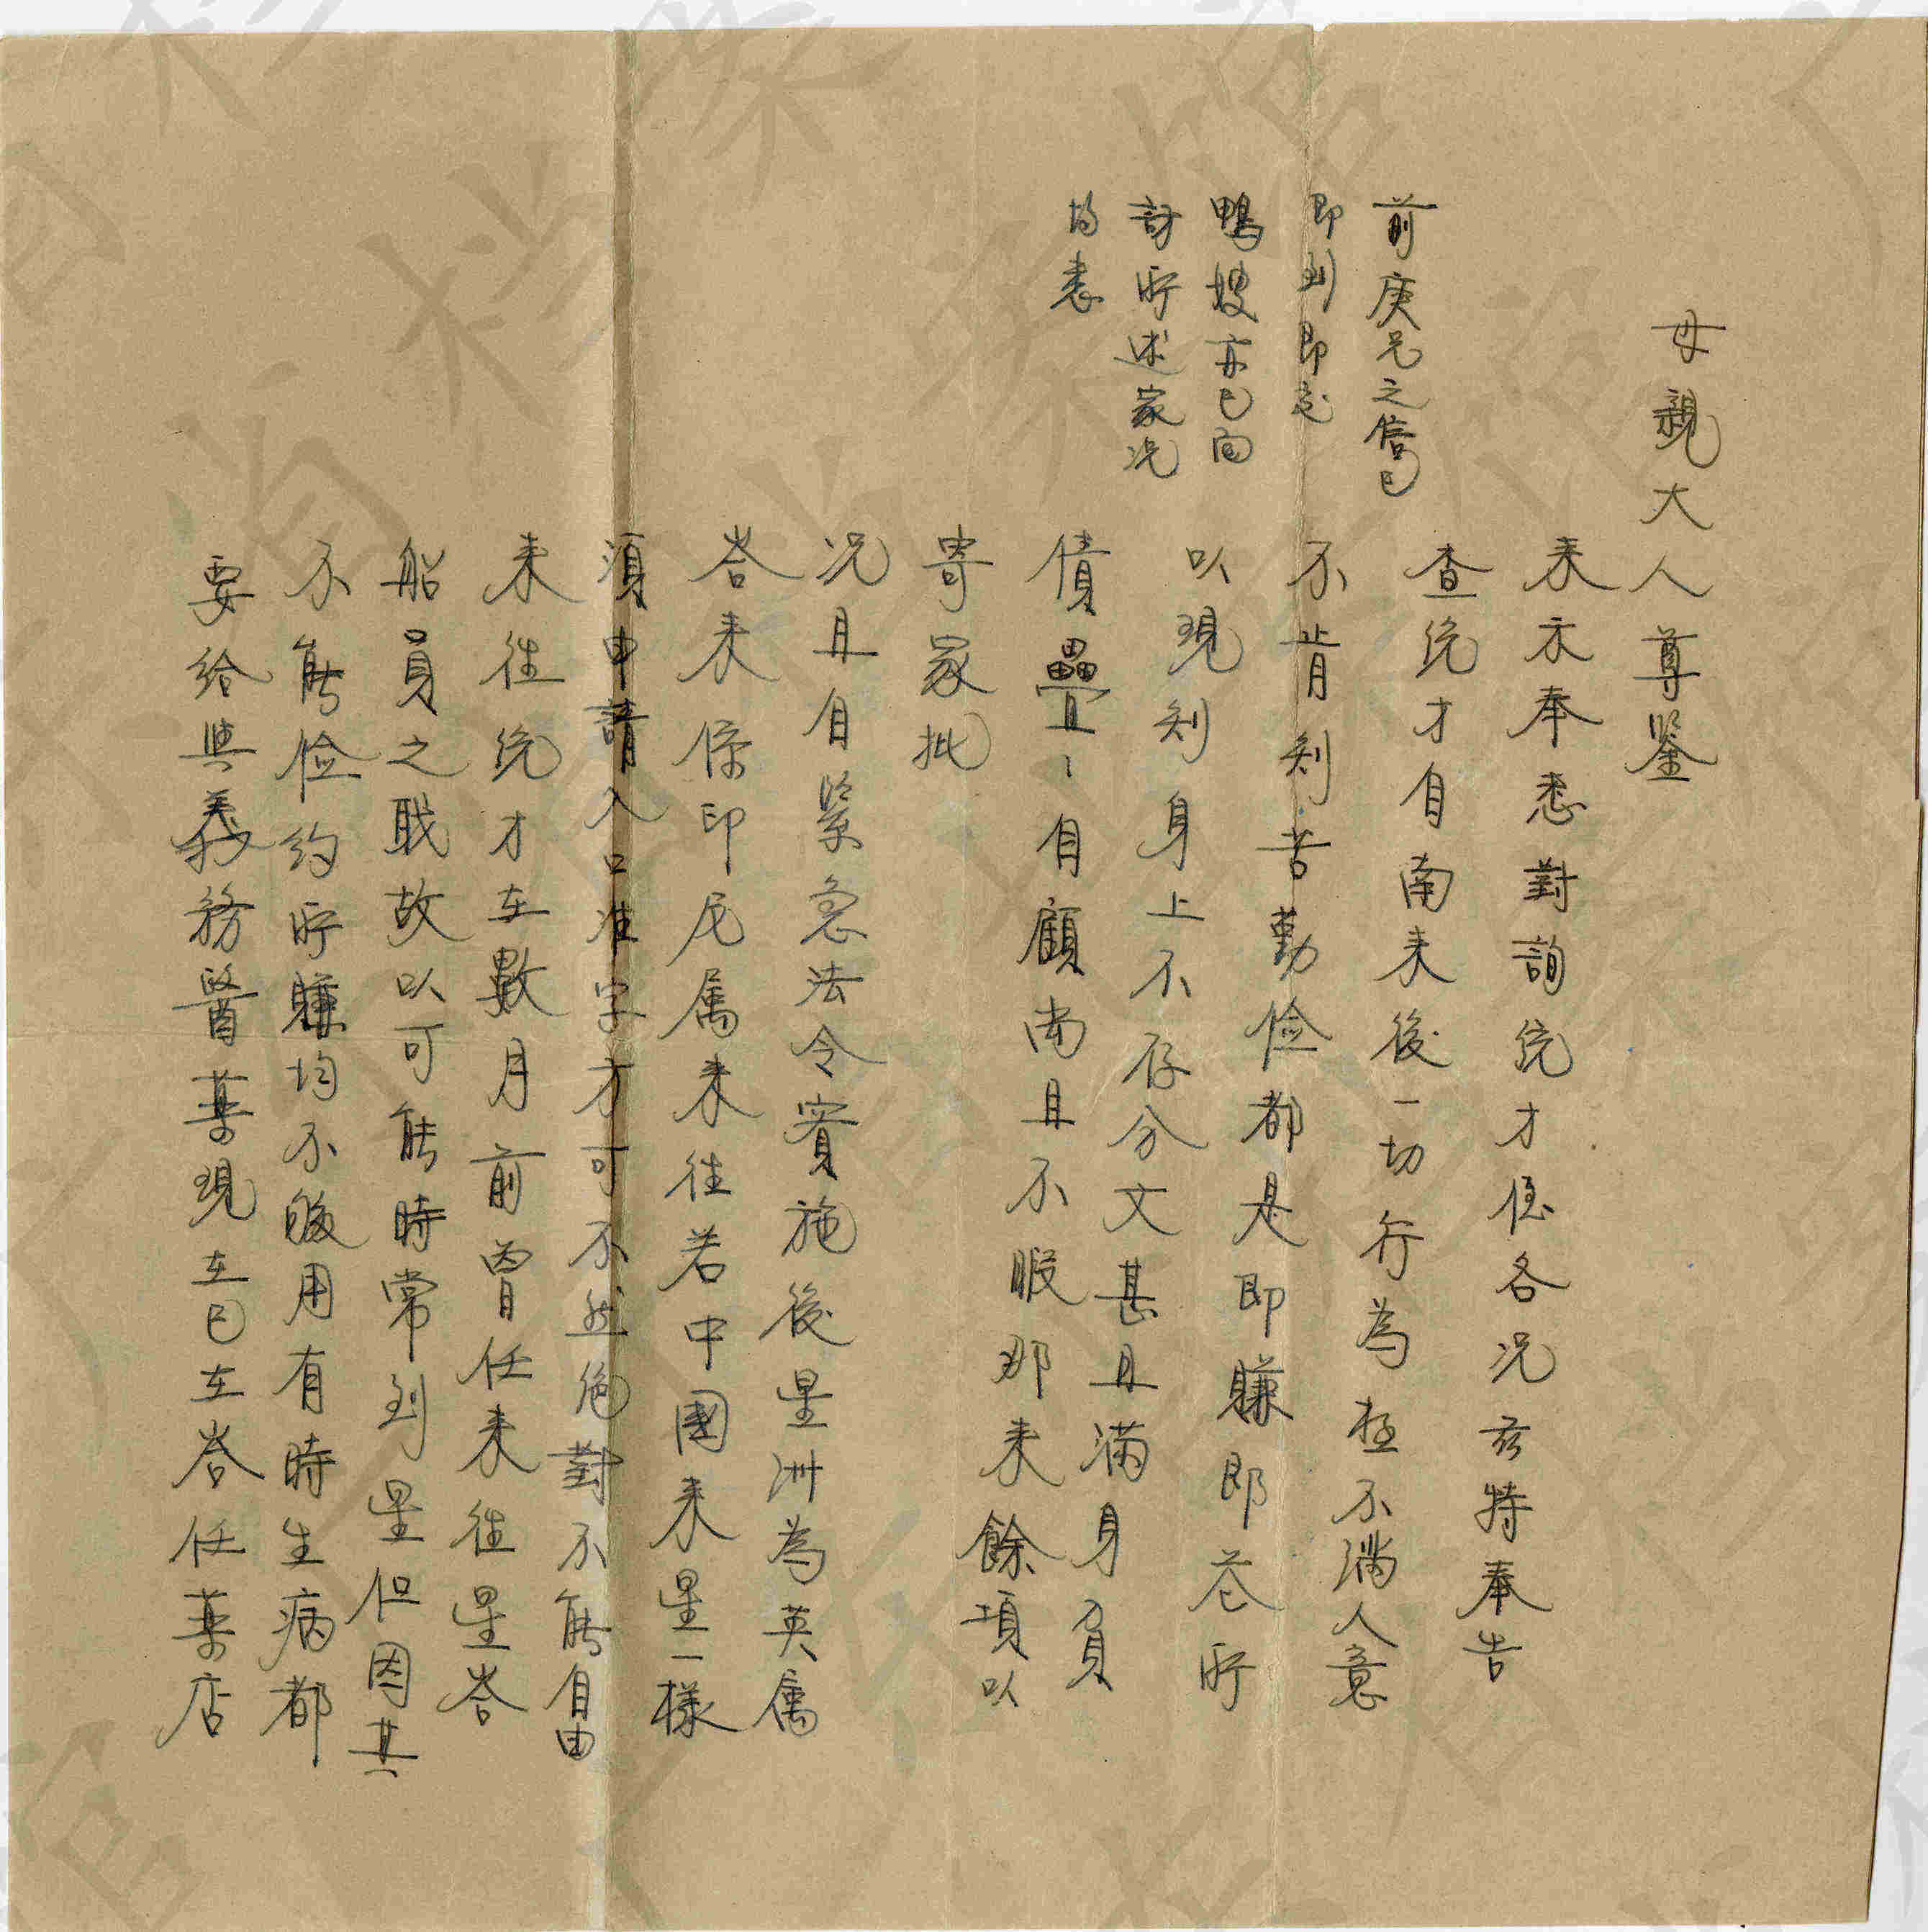 母親大人尊鑒
來示奉悉對詢統才侄各况兹特奉告
查統才自南來後一切行為極不滿人意
不肯刻苦勤儉都是即賺即花所
以現刻身上不存分文甚且滿身負
債疊〻自顧尚且不暇那來餘項以
寄家批
况且自緊急法令實施後星洲為英属
峇來係印尼属來往若中國來星一樣
須申請入口准字方可不然絶對不能自由
來往統才在數月前曾任來往星峇
船員之職故以可能時常到星但因其
不能儉約所賺均不够用有時生病都
要給與義務醫藥現在已在峇任藥店
前庚兄之信已
即到即交
鴨嫂亦已面
訪所述家况
均悉